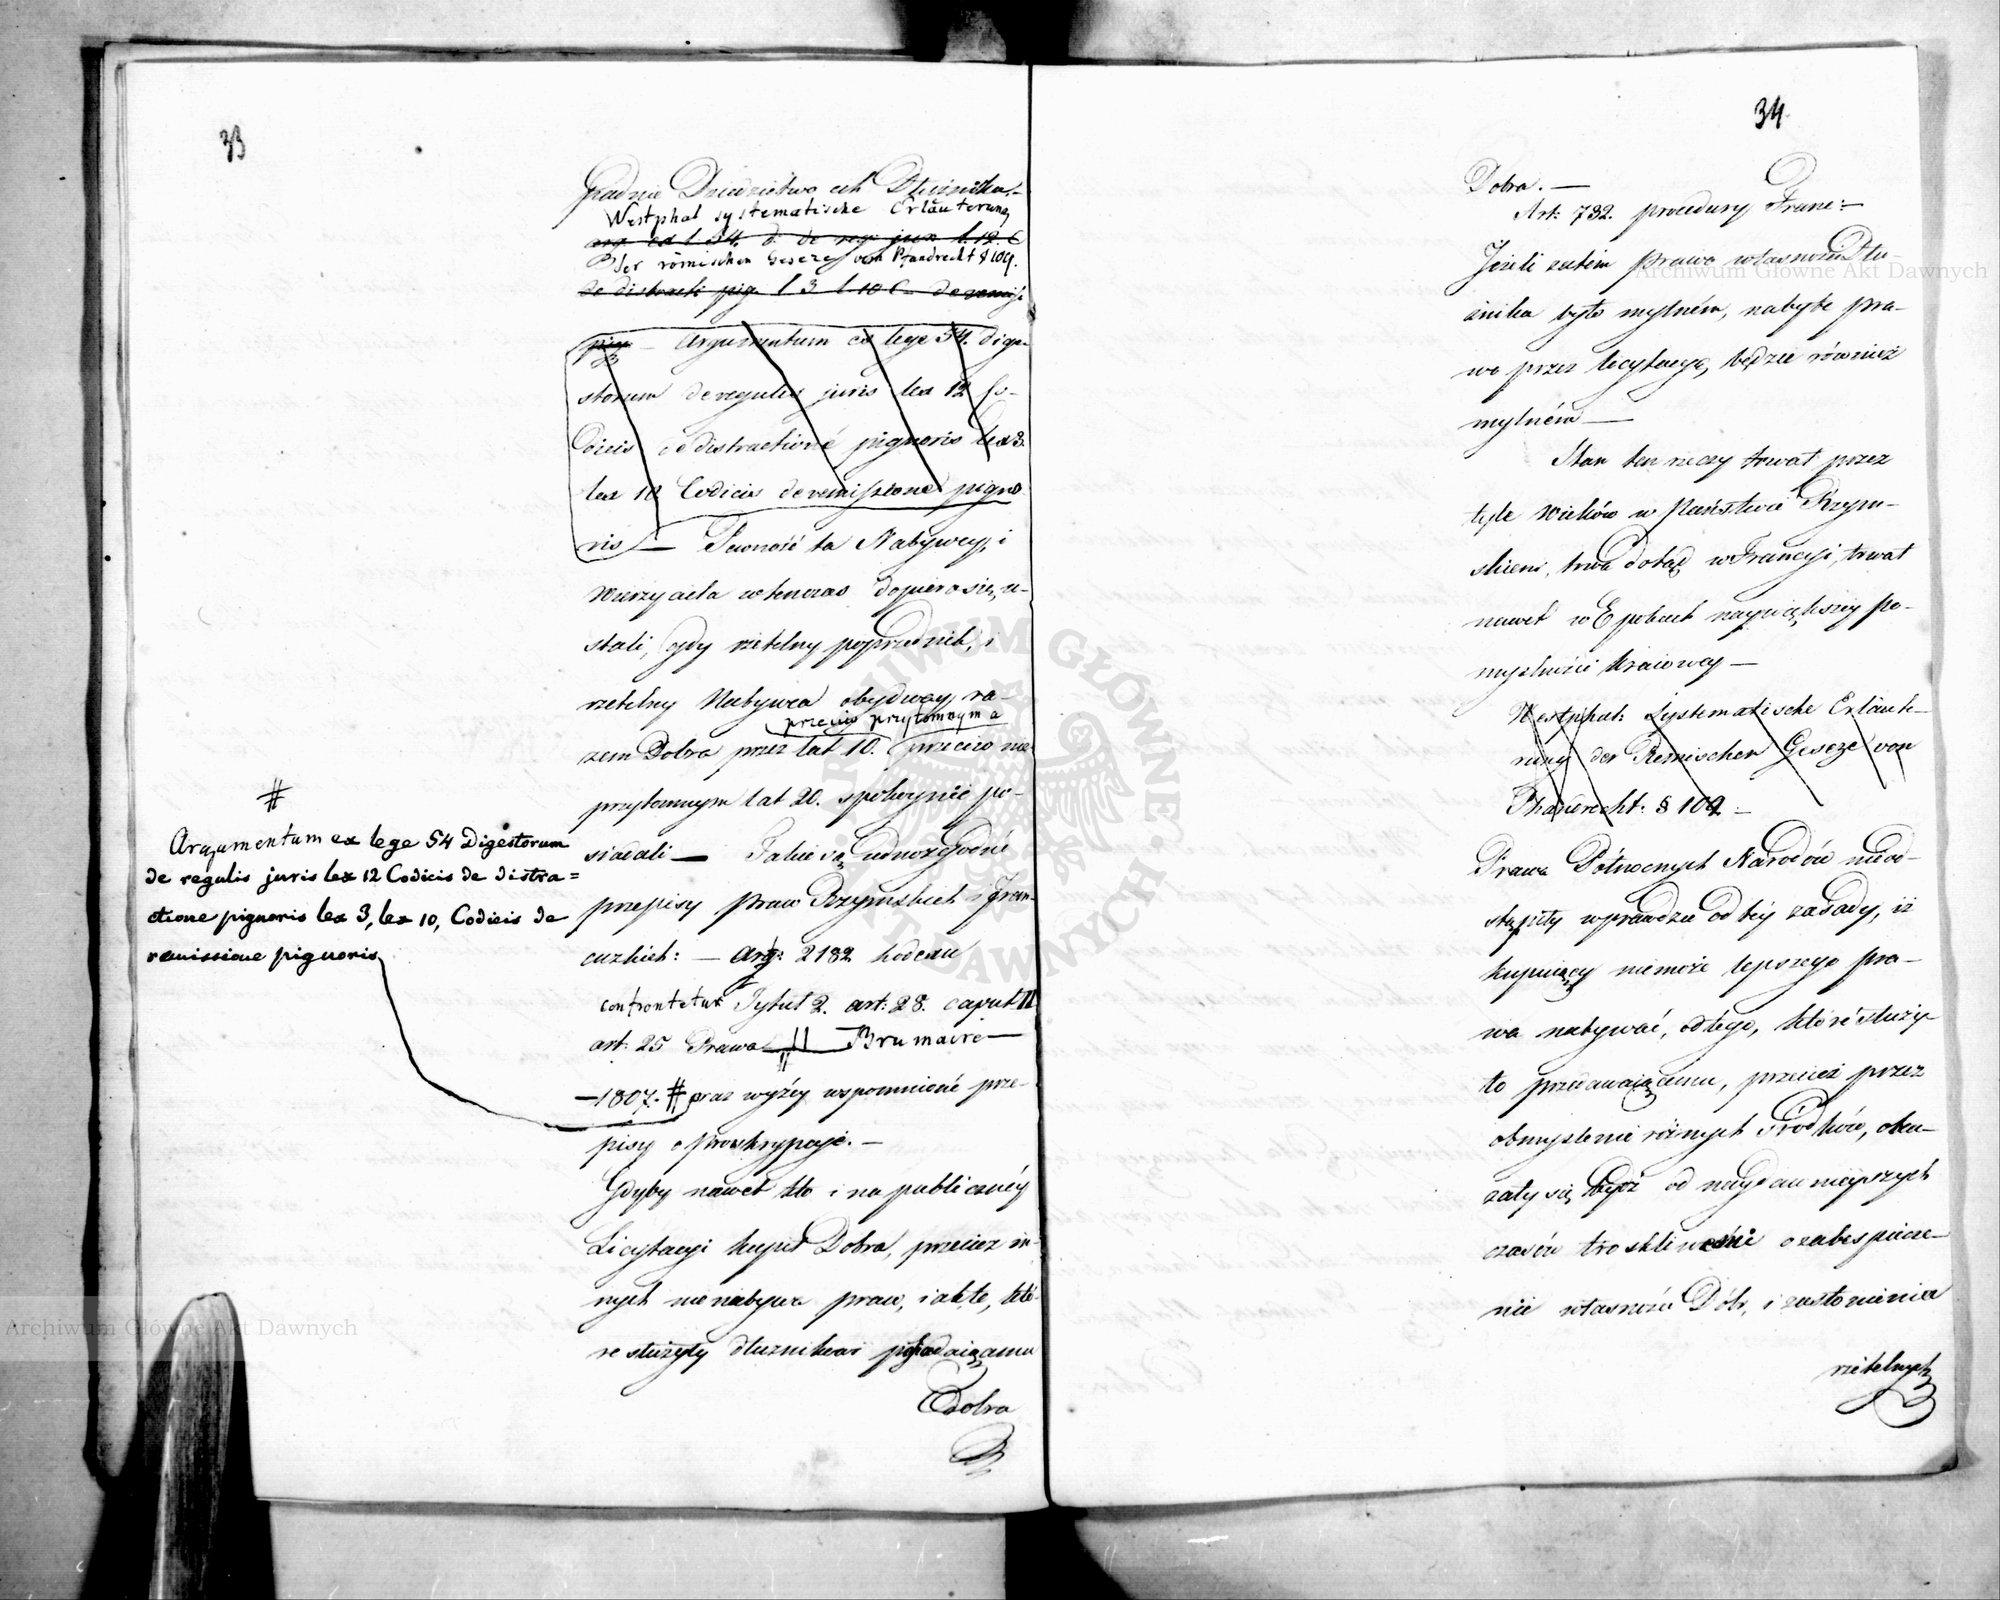 33
Dziedzictwo
Westphal systematische Erläuterung
arg ex l. 54. d. de reg jur l. 12. C
Der römischen Geseze von Pfandrecht § 109.
de distracti pig. l 3 l. 10 C. de remiss
pig. — Argumentum ex lege 54. dige-
storum de regulis juris lex 12 Co-
dicis de distractione pignoris lex 3.
lex 10 Codicis de remissione pigno
ris — Pewność ta Nabywcy, i
Wierzyciela wtenczas dopiero się u-
stali, gdy rzetelny poprzednik, i
rzetelny Nabywca obydway ra-
przeciw przytomnym a
zem Dobra przez lat 10. przeciw nie
przytomnym lat 20. spokoynie po-
siadali — Takie są jednozgodne
przepisy praw Rzymskich i Fran-
cuzkich: — art: 2182 kodexu
confrontetur Tytuł 2. art: 28. caput II
art: 25 Prawa 11 Brumaire —
— 1807. # oraz wyżéy wspomnione prze-
pisy o proskrypcyi. —
Gdyby nawet kto i na publicznéy
Licytacyi kupił Dobra, przecież in-
nych nie nabywa praw, iak te, któ-
re służyły dłużnikowi posiadaiącemu
Dobra
#
Argumentum ex lege 54 Digestorum
de regulis juris lex 12 Codicis de distra=
ctione pignoris lex 3, lex 10, Codicis de
remissione pignoris
34
Dobra. —
Art: 732. procedury Franc: —
Jeżeli zatém prawo własności Dłu-
żnika było mylném, nabyte pra-
wo przez licytacyę, będzie również
mylném —
Stan ten rzeczy trwał przez
tyle Wieków w Państwie Rzym-
skiem, trwa dotąd w Francyi, trwał
nawet w Epokach naywiększéy po-
myślności kraiowey —
Westphal: Systematische Erläute-
rung der Römischen Geseze von
Pfandrecht: § 109 —
Prawa Północnych Narodów nieod-
stąpiły wprawdzie od téy zasady, iż
kupuiący niemoże lepszego pra-
wa nabywać, od tego, które służy-
ło przedawaiącemu, przecież przez
obmyślenie różnych Środków, oka-
zały się bydź od naydawnieyszych
czasów troskliwemi o zabespiecze-
nie własności Dóbr, i zasłonienia
rzetelnych